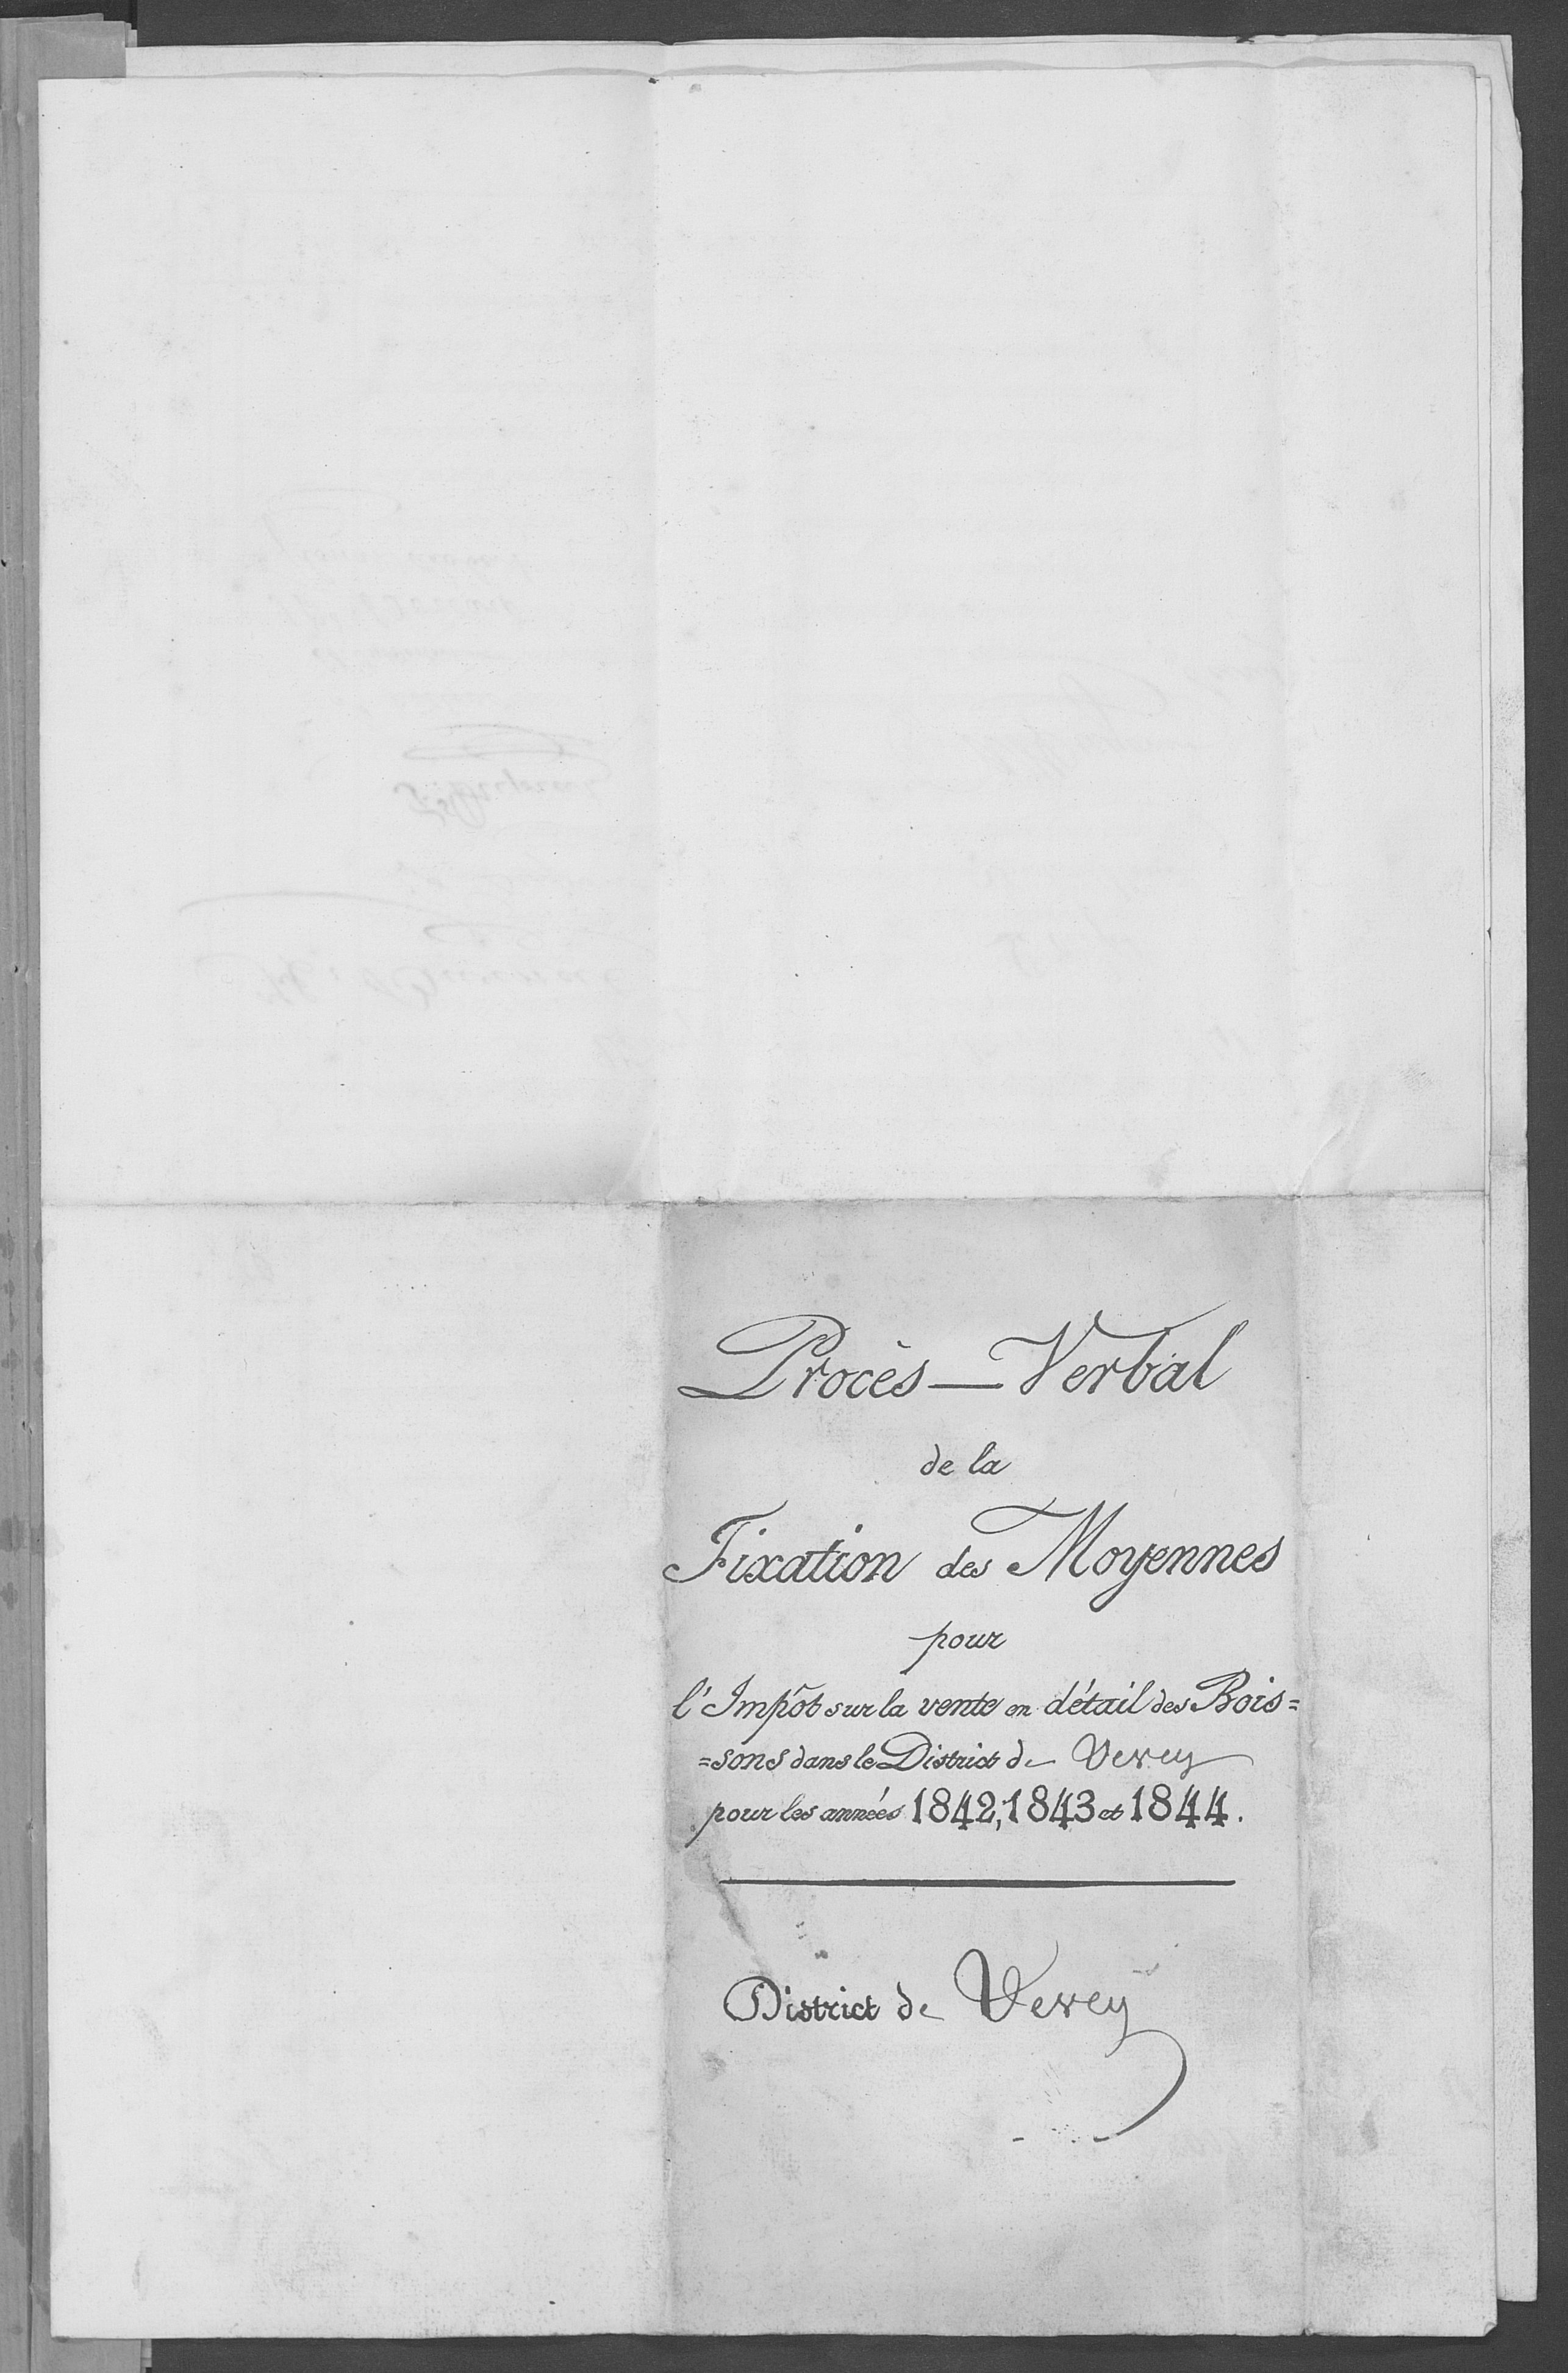 Procès—Verbal
de la
Fixation des Moyennes
pour
l'Impôt sur la vente en détail des Bois=
=sons dans le District de Vevey
pour les années 1842, 1843 et 1844.
District de Vevey